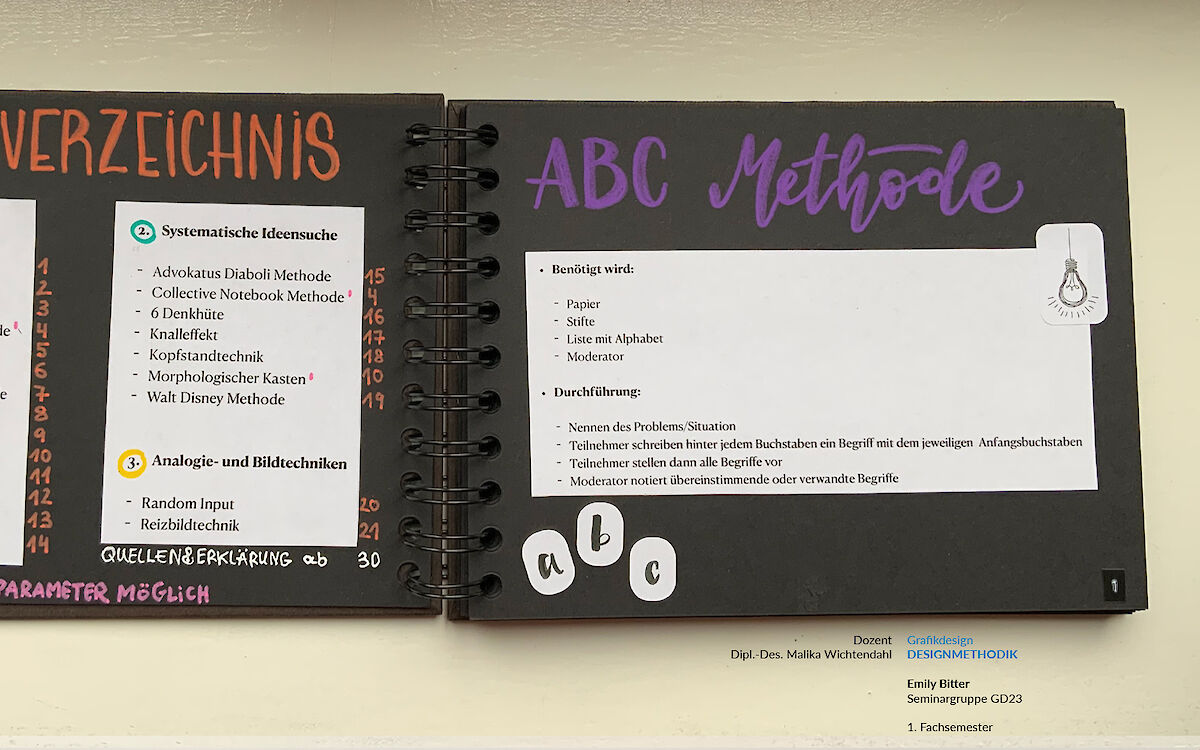 VERZEiCHNiS
1
2
3
4
5
6
7
8
9
10
11
12
13
14
2. Systematische Ideensuche
- Advokatus Diaboli Methode 15
- Collective Notebook Methode 4
- 6 Denkhüte 16
- Knalleffekt 17
- Kopfstandtechnik 18
- Morphologischer Kasten 10
- Walt Disney Methode 19
3. Analogie- und Bildtechniken
- Random Input 20
- Reizbildtechnik 21
QUELLEN&ERKLÄRUNG ab 30
PARAMETER MÖGLiCH
ABC Methode
• Benötigt wird:
- Papier
- Stifte
- Liste mit Alphabet
- Moderator
• Durchführung:
- Nennen des Problems/Situation
- Teilnehmer schreiben hinter jedem Buchstaben ein Begriff mit dem jeweiligen Anfangsbuchstaben
- Teilnehmer stellen dann alle Begriffe vor
- Moderator notiert übereinstimmende oder verwandte Begriffe
a b c
1
Dozent
Dipl.-Des. Malika Wichtendahl
Grafikdesign
DESIGNMETHODIK
Emily Bitter
Seminargruppe GD23
1. Fachsemester